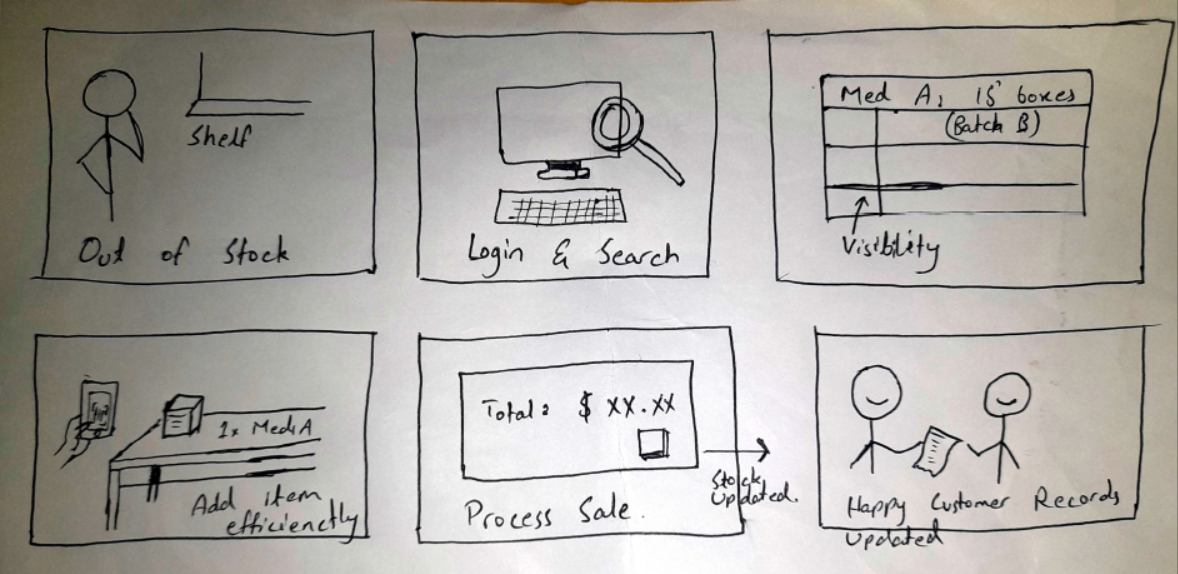 Shelf
Out of Stock
Login & Search
Med A: 15 boxes
(Batch B)
Visibility
1x Med A
Add item
efficienctly
Total: $ XX.XX
Stock
Updated.
Process Sale.
Happy Customer Records
Updated